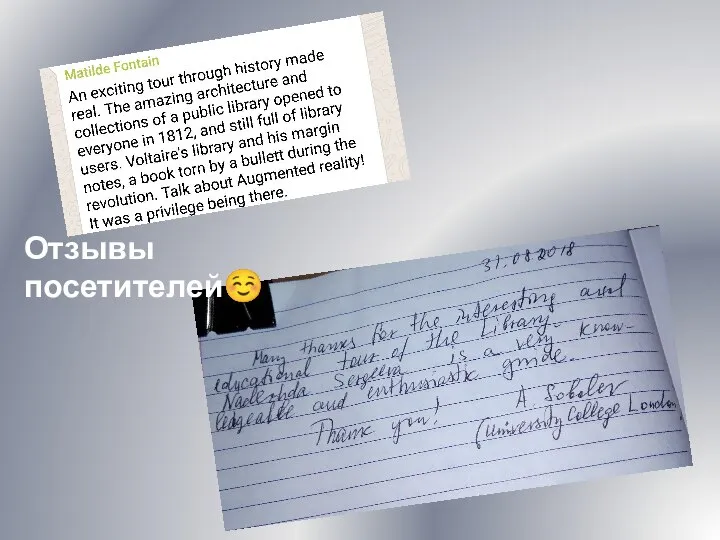 Matilde Fontain
An exciting tour through history made
real. The amazing architecture and
collections of a public library opened to
everyone in 1812, and still full of library
users. Voltaire's library and his margin
notes, a book torn by a bullett during the
revolution. Talk about Augmented reality!
It was a privilege being there.
Отзывы
посетителей☺️
31.08.2018
Many thanks for the interesting and
educational tour of the Library.
Nadezhda Sergeeva is a very know-
ledgeable and enthusiastic guide.
Thank you!
A. Sobolev
(University College London)